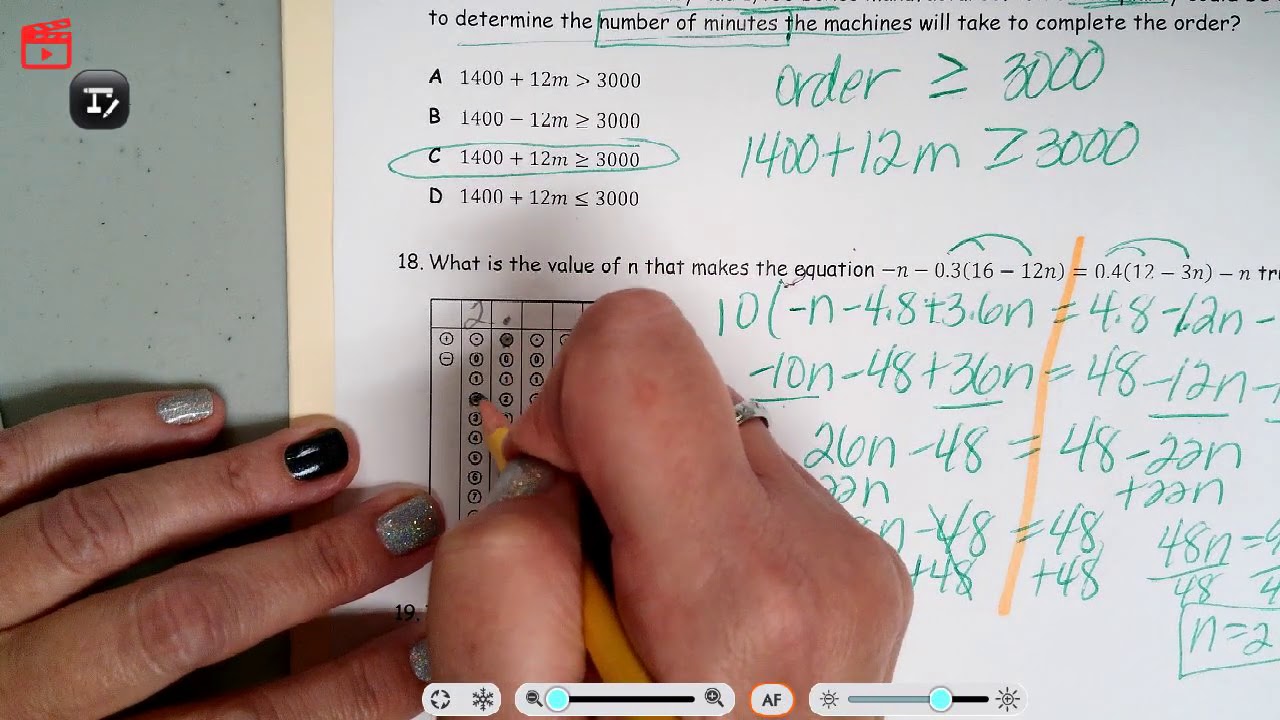 to determine the number of minutes the machines will take to complete the order?
A 1400 + 12m > 3000
B 1400 − 12m ≥ 3000
C 1400 + 12m ≥ 3000
D 1400 + 12m ≤ 3000
order ≥ 3000
1400+12m ≥ 3000
18. What is the value of n that makes the equation −n − 0.3(16 − 12n) = 0.4(12 − 3n) − n
10(-n-4.8+3.6n = 4.8-1.2n -
-10n-48+36n = 48-12n-
26n-48 = 48-22n
22n +22n
n-48 = 48
+48 +48
48n=
48
n=2
2 .
+ − 0 1 2 3 4 5 6 7
19.
AF